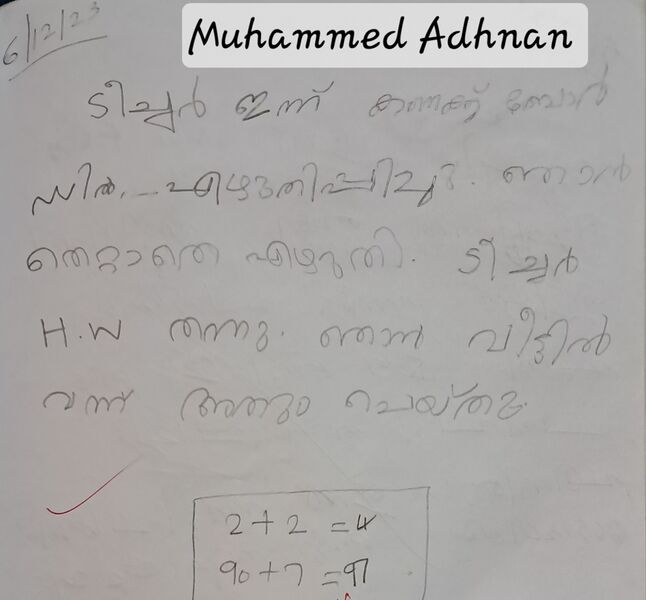 6/12/23
Muhammed Adhnan
ടീച്ചർ ഇന്ന് കണക്ക് ബോർ
ഡിൽ എഴുതിപ്പിച്ചു. ഞാൻ
തെറ്റാതെ എഴുതി. ടീച്ചർ
H.W തന്നു. ഞാൻ വീട്ടിൽ
വന്ന് അതും ചെയ്തു.
2+2 =4
90+7 =97